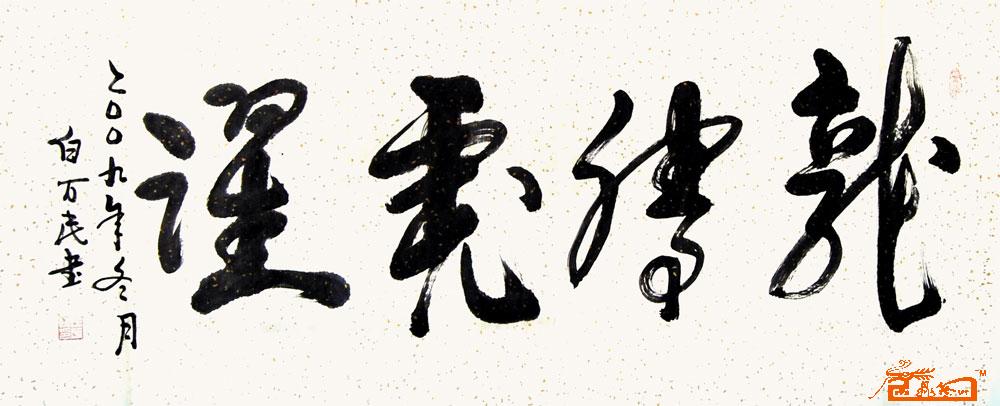 龍騰虎躍
二〇〇九年冬月
白万民書